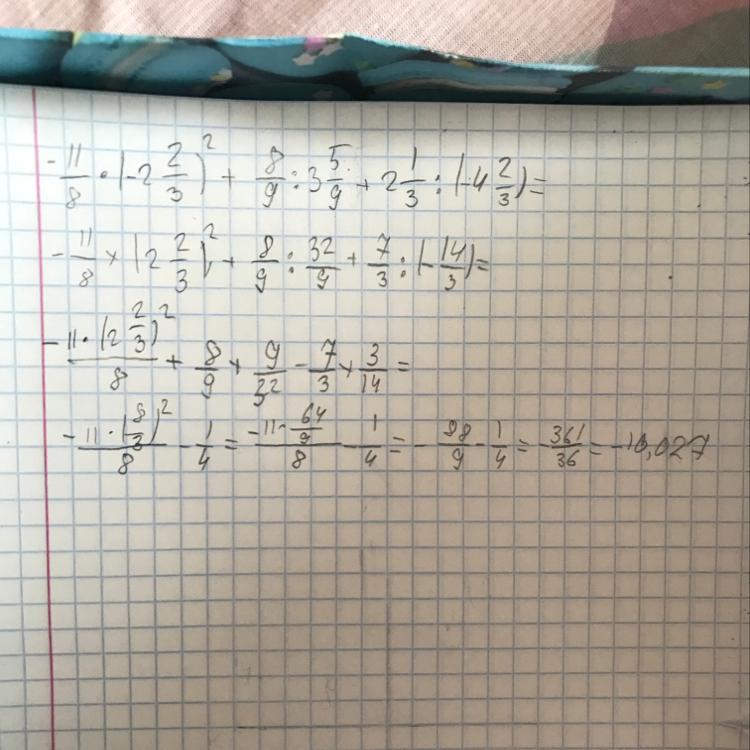 -11/8 · (-2 2/3)² + 8/9 : 3 5/9 + 2 1/3 : (-4 2/3) =
-11/8 × (2 2/3)² + 8/9 : 32/9 + 7/3 : (-14/3) =
-11·(2 2/3)²/8 + 8/9 × 9/32 - 7/3 × 3/14 =
-11·(8/3)²/8 - 1/4 = -11·64/9/8 - 1/4 = -88/9 - 1/4 = -361/36 = -10,027